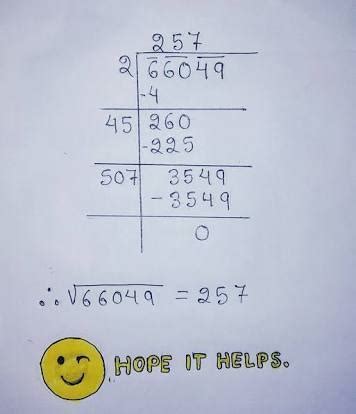 257
2 66049
-4
45 260
-225
507 3549
-3549
0
∴ √66049 = 257
HOPE IT HELPS.